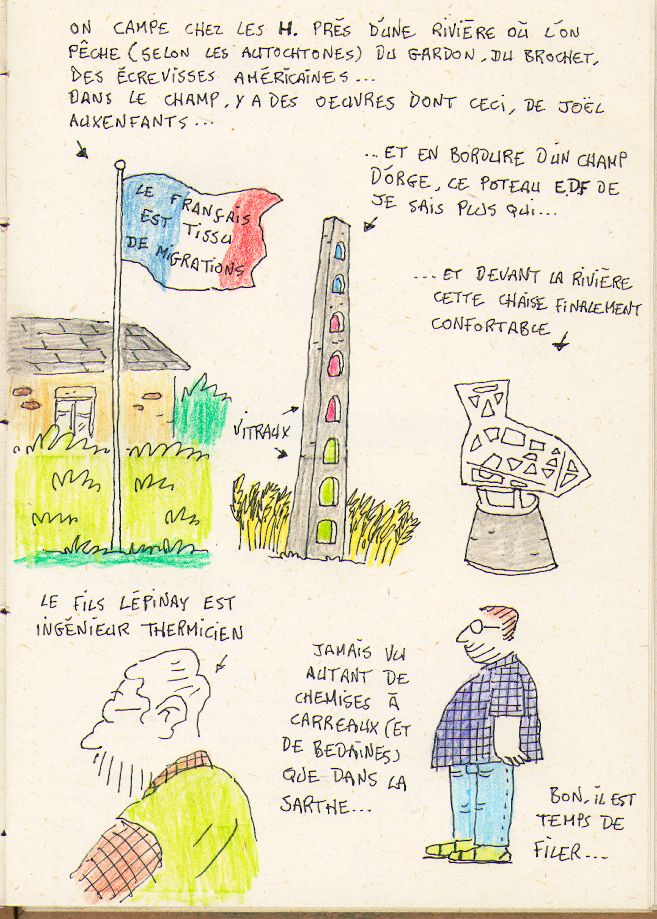 ON CAMPE CHEZ LES H. PRÈS D'UNE RIVIÈRE OÙ L'ON
PÊCHE (SELON LES AUTOCHTONES) DU GARDON, DU BROCHET,
DES ÉCREVISSES AMÉRICAINES...
DANS LE CHAMP, Y A DES OEUVRES DONT CECI, DE JOËL
AUXENFANTS...
LE FRANÇAIS
EST TISSU
DE MIGRATIONS
...ET EN BORDURE D'UN CHAMP
D'ORGE, CE POTEAU E.D.F DE
JE SAIS PLUS QUI...
...ET DEVANT LA RIVIÈRE
CETTE CHAISE FINALEMENT
CONFORTABLE
VITRAUX
LE FILS LÉPINAY EST
INGÉNIEUR THERMICIEN
JAMAIS VU
AUTANT DE
CHEMISES À
CARREAUX (ET
DE BEDAINES)
QUE DANS LA
SARTHE...
BON, IL EST
TEMPS DE
FILER...